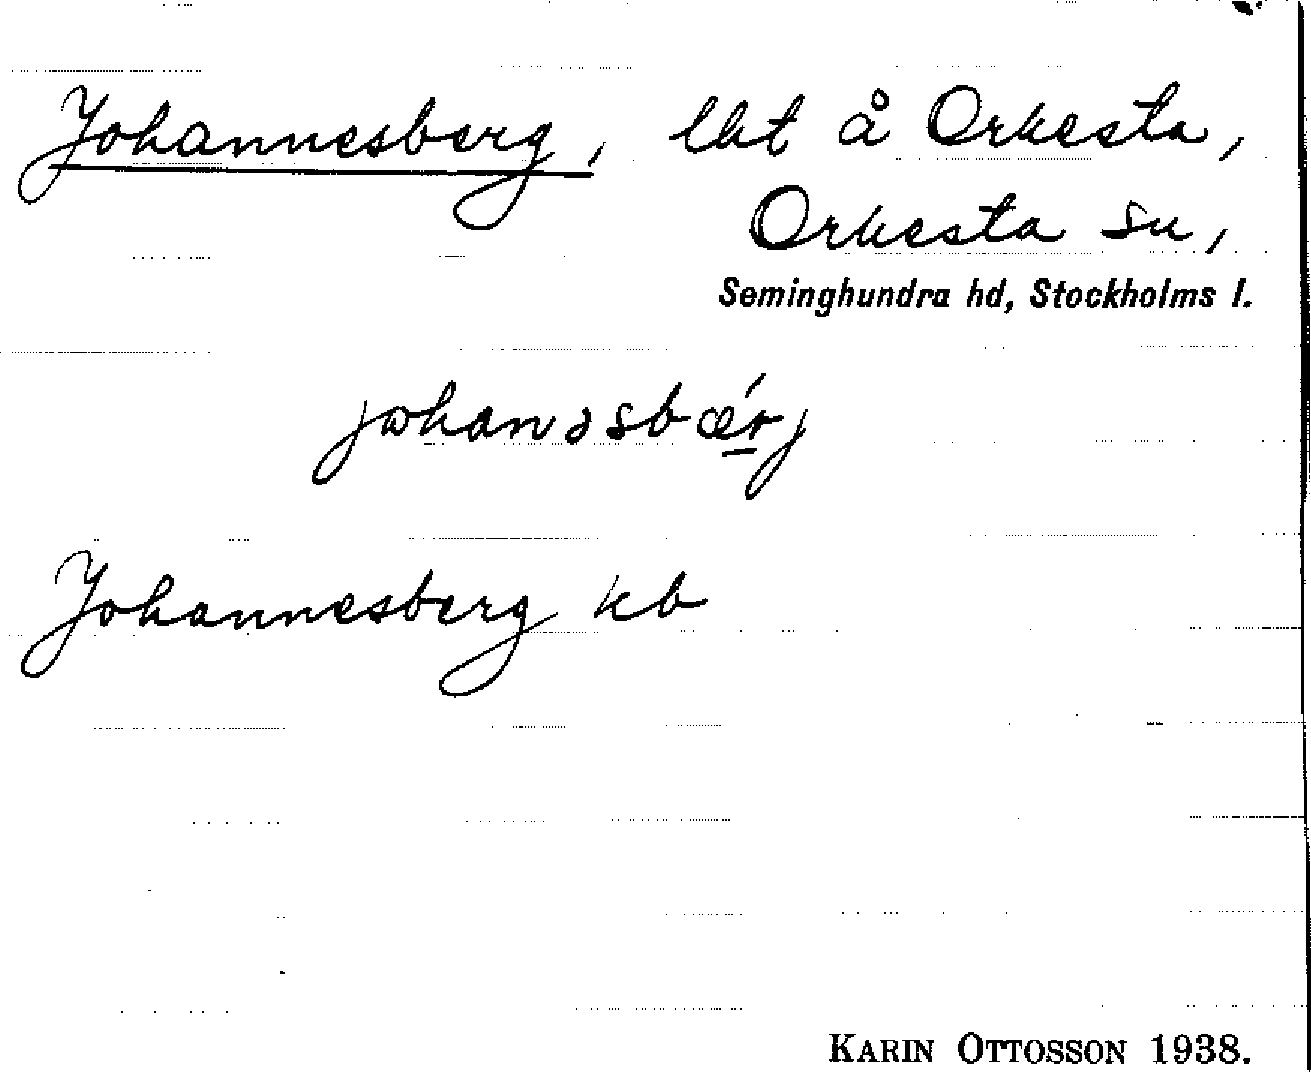 Johannesberg, lht å Orkesta,
Orkesta sn,
Seminghundra hd, Stockholms l.
johanəsbǽrj
Johannesberg kb
KARIN OTTOSSON 1938.